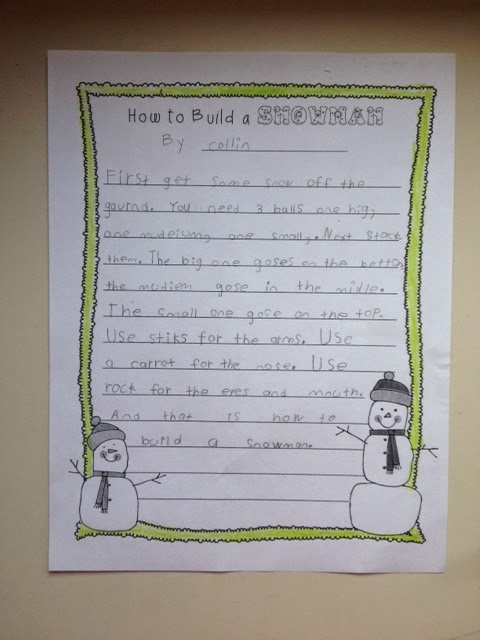 How to Build a SNOWMAN
By collin
First get some snow off the
gournd. You need 3 balls one big,
one mudeiumg one small,. Next stack
them. The big one goses on the bottom
the mudiem gose in the midle.
The small one gose on the top.
Use stiks for the arms. Use
a carrot for the nose. Use
rock for the eyes and mouth.
And that is how to
build a snowman.